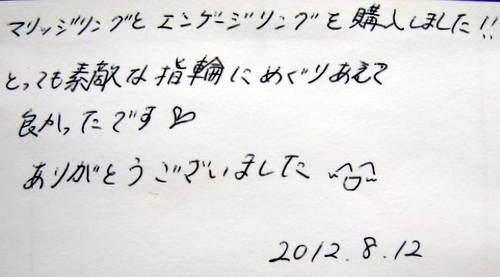 マリッジリングと エンゲージリングを購入しました!!
とっても素敵な指輪にめぐりあえて
良かったです♡
ありがとうございました ^o^
2012.8.12